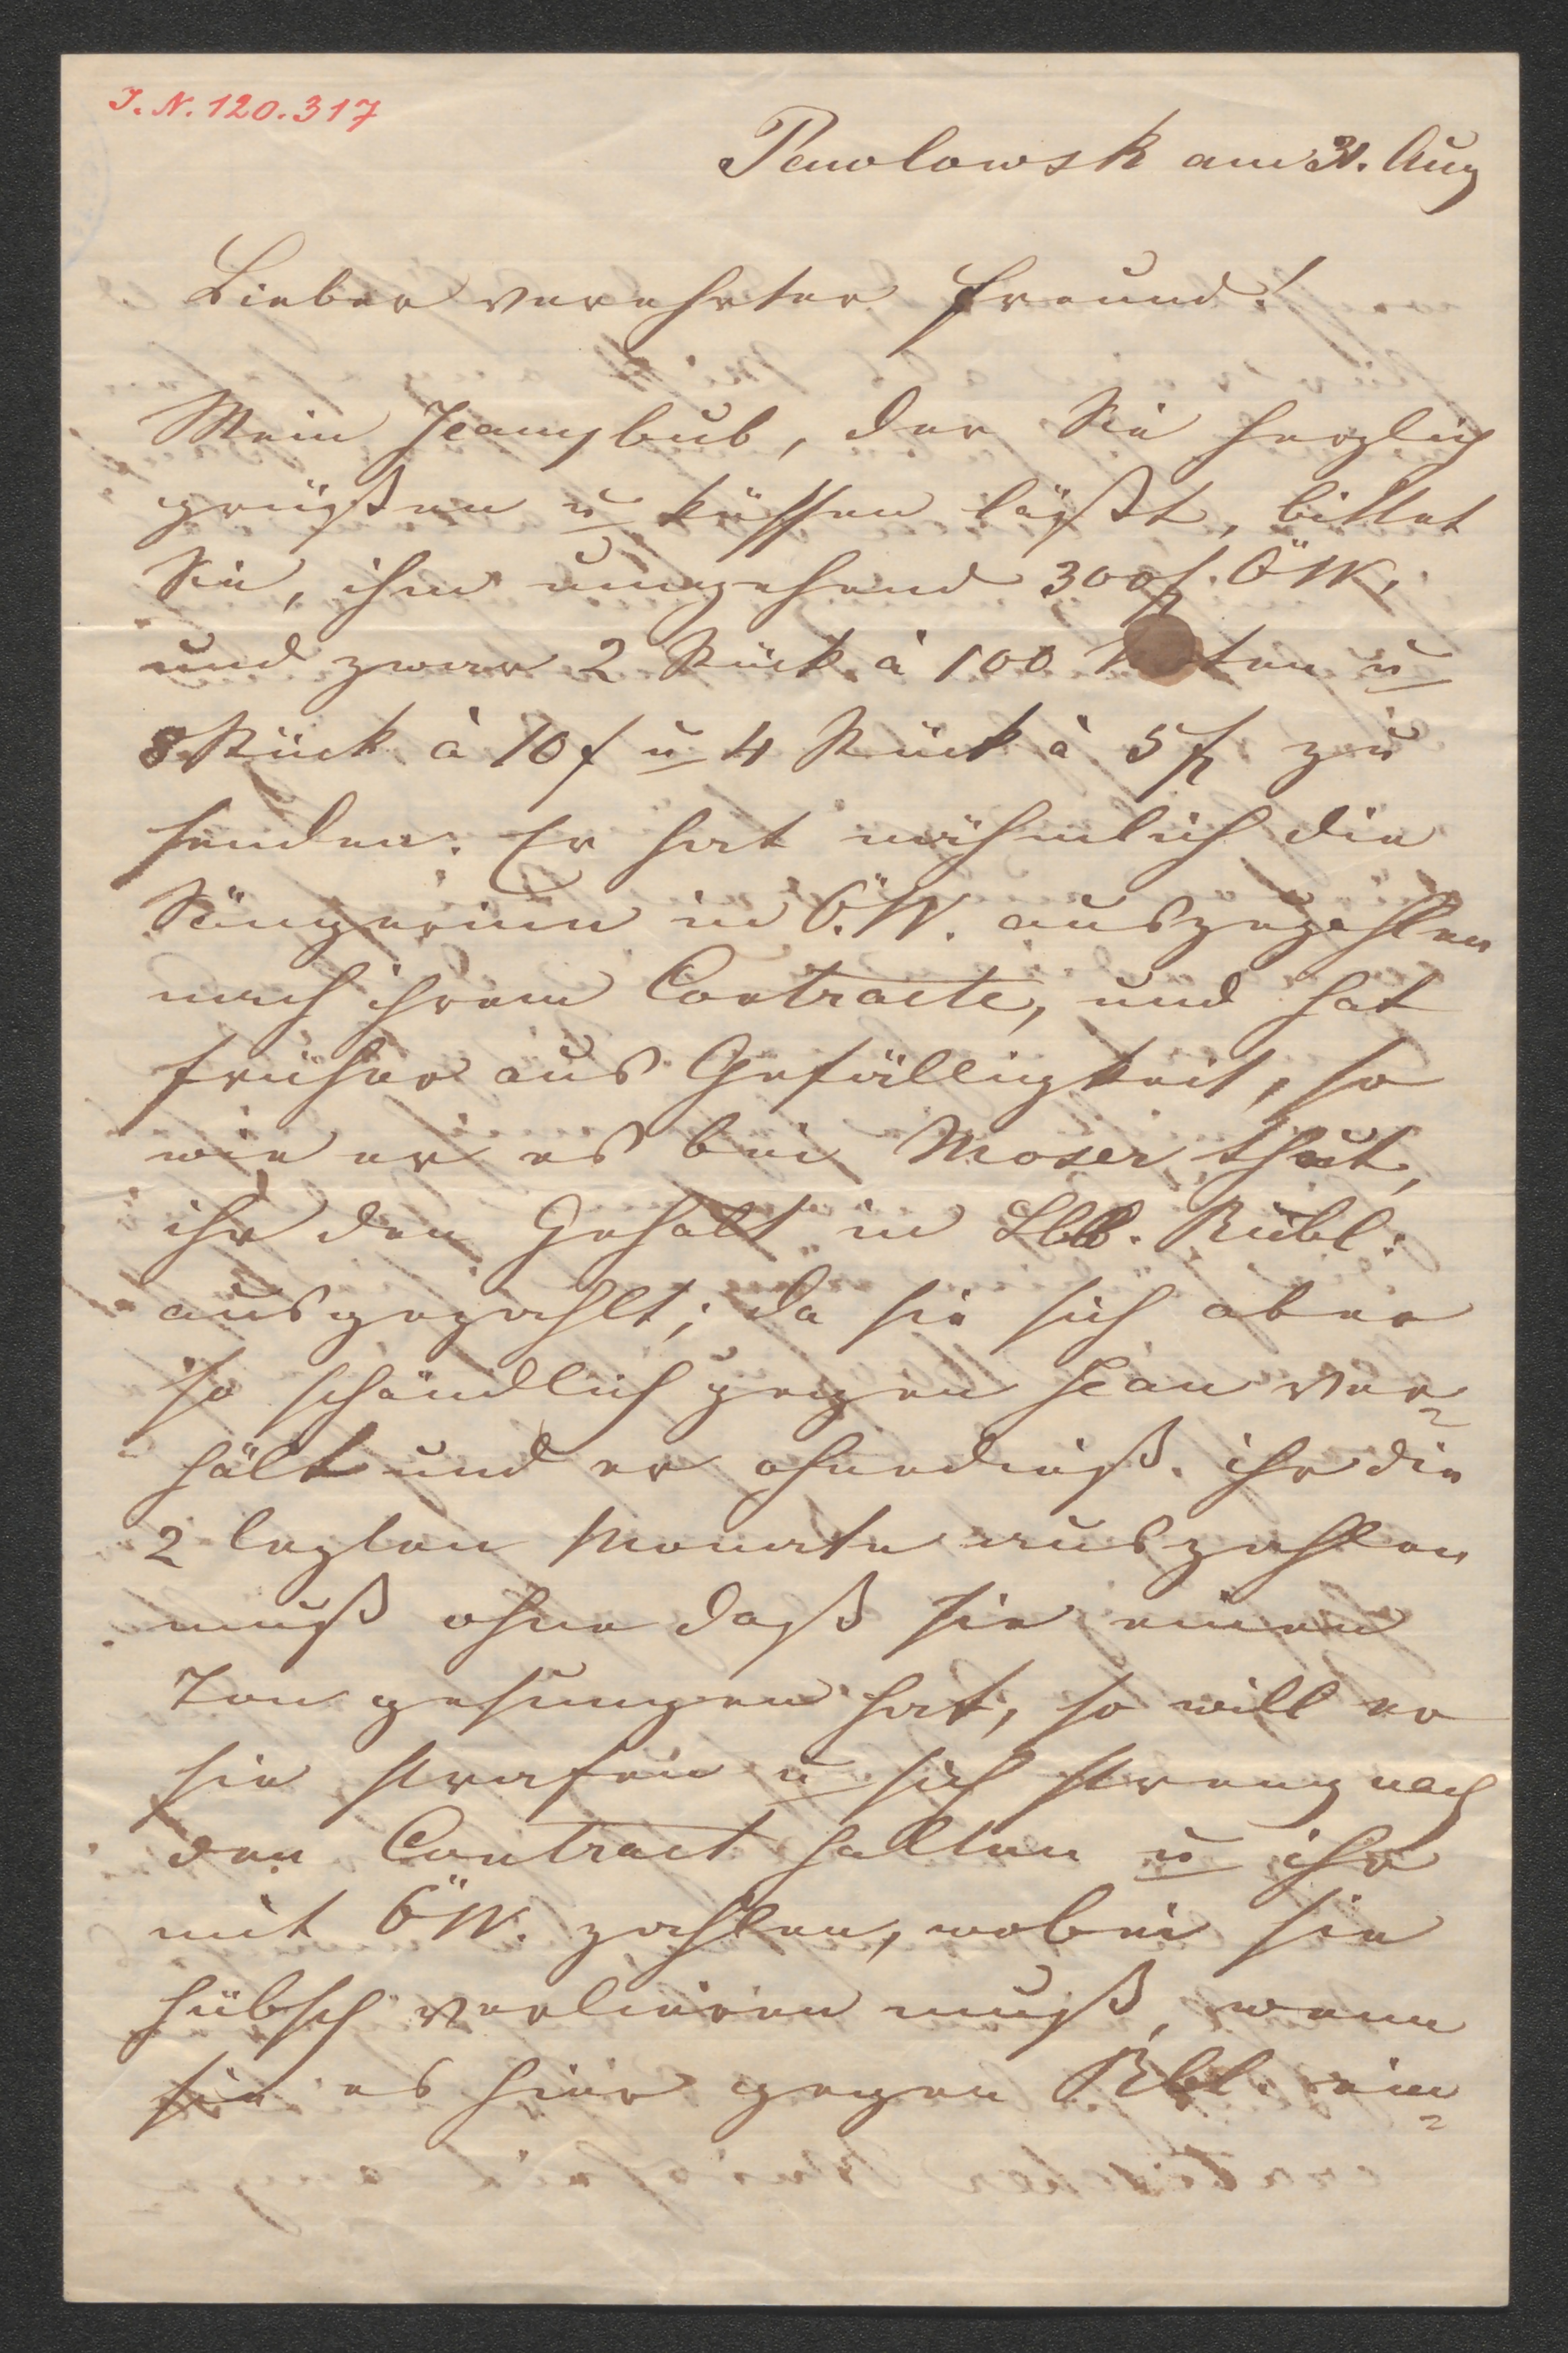 J. N. 120.317
Pawolowsk am 31. Aug
Lieber verehrter Freund!
Mein Jeanybub, der Sie herzlich
grüßen u küssen läßt, bittet
Sie, ihm umgehend 300 f. ÖW,
und zwar 2 Stück à 100 Noten u
8 Stück à 10 f u 4 Stück à 5 f zu
senden. Er hat nähmlich die
Sängerinn in Ö.W. auszuzahlen
nach ihrem Contracte, und hat
früher aus Gefälligkeit, so
wie er es bei Moser thut,
ihr den Gehalt in Slb. Rubl:
ausgezahlt; da sie sich aber
so schändlich gegen Jean ver=
hält und er ohnedieß ihr die
2 lezten Monate auszahlen
muß ohne daß sie einen
Ton gesungen hat, so will er
sie strafen u sich streng nach
den Contract halten u ihr
mit ÖW. zahlen, wobei sie
hübsch verlieren muß, wenn
sie es hier gegen Rbl. ein=